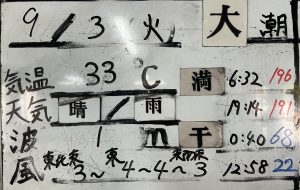 9/3 火 大潮
気温 33℃ 満 6:32 196
天気 晴/雨 19:14 191
波 1m 干 0:40 68
風 東北東 3〜 東 4〜4〜 東南東 3 12:58 22